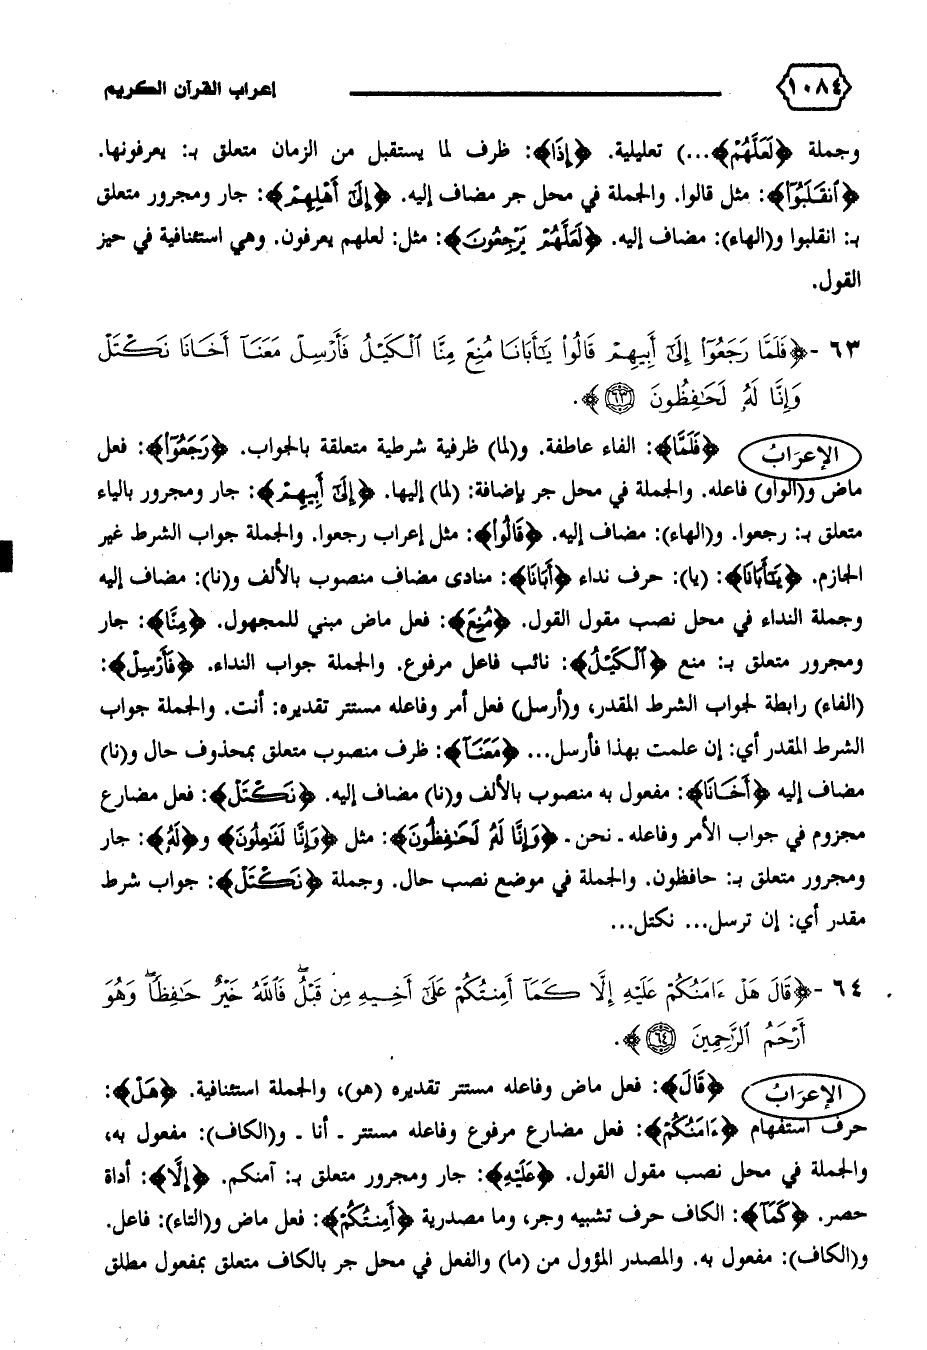 ١٠٨٤ إعراب القرآن الكريم
وجملة ﴿لَعَلَّهُمْ﴾...) تعليلية. ﴿إِذَا﴾: ظرف لما يستقبل من الزمان متعلق بـ: يعرفونها.
﴿ٱنقَلَبُوٓا۟﴾: مثل قالوا. والجملة في محل جر مضاف إليه. ﴿إِلَىٰٓ أَهْلِهِمْ﴾: جار ومجرور متعلق
بـ: انقلبوا و(الهاء): مضاف إليه. ﴿لَعَلَّهُمْ يَرْجِعُونَ﴾: مثل: لعلهم يعرفون. وهي استئنافية في حيز
القول.
٦٣ -﴿فَلَمَّا رَجَعُوٓا۟ إِلَىٰٓ أَبِيهِمْ قَالُوا۟ يَـٰٓأَبَانَا مُنِعَ مِنَّا ٱلْكَيْلُ فَأَرْسِلْ مَعَنَآ أَخَانَا نَكْتَلْ
وَإِنَّا لَهُۥ لَحَـٰفِظُونَ ٦٣﴾.
الإعرَابُ ﴿فَلَمَّا﴾: الفاء عاطفة. و(لما) ظرفية شرطية متعلقة بالجواب. ﴿رَجَعُوٓا۟﴾: فعل
ماض و(الواو) فاعله. والجملة في محل جر بإضافة: (لما) إليها. ﴿إِلَىٰٓ أَبِيهِمْ﴾: جار ومجرور بالياء
متعلق بـ: رجعوا. و(الهاء): مضاف إليه. ﴿قَالُوا۟﴾: مثل إعراب رجعوا. والجملة جواب الشرط غير
الجازم. ﴿يَـٰٓأَبَانَا﴾: (يا): حرف نداء ﴿أَبَانَا﴾: منادى مضاف منصوب بالألف و(نا): مضاف إليه
وجملة النداء في محل نصب مقول القول. ﴿مُنِعَ﴾: فعل ماض مبني للمجهول. ﴿مِنَّا﴾: جار
ومجرور متعلق بـ: منع ﴿ٱلْكَيْلُ﴾: نائب فاعل مرفوع. والجملة جواب النداء. ﴿فَأَرْسِلْ﴾:
(الفاء) رابطة لجواب الشرط المقدر، و(أرسل) فعل أمر وفاعله مستتر تقديره: أنت. والجملة جواب
الشرط المقدر أي: إن علمت بهذا فأرسل... ﴿مَعَنَآ﴾: ظرف منصوب متعلق بمحذوف حال و(نا)
مضاف إليه ﴿أَخَانَا﴾: مفعول به منصوب بالألف و(نا) مضاف إليه. ﴿نَكْتَلْ﴾: فعل مضارع
مجزوم في جواب الأمر وفاعله ـ نحن ـ ﴿وَإِنَّا لَهُۥ لَحَـٰفِظُونَ﴾: مثل ﴿وَإِنَّا لَفَـٰعِلُونَ﴾ و﴿لَهُۥ﴾: جار
ومجرور متعلق بـ: حافظون. والجملة في موضع نصب حال. وجملة ﴿نَكْتَلْ﴾: جواب شرط
مقدر أي: إن ترسل... نكتل...
٦٤ -﴿قَالَ هَلْ ءَامَنُكُمْ عَلَيْهِ إِلَّا كَمَآ أَمِنتُكُمْ عَلَىٰٓ أَخِيهِ مِن قَبْلُ ۖ فَٱللَّهُ خَيْرٌ حَـٰفِظًا ۖ وَهُوَ
أَرْحَمُ ٱلرَّٰحِمِينَ ٦٤﴾.
الإعرَابُ ﴿قَالَ﴾: فعل ماض وفاعله مستتر تقديره (هو)، والجملة استئنافية. ﴿هَلْ﴾:
حرف استفهام ﴿ءَامَنُكُمْ﴾: فعل مضارع مرفوع وفاعله مستتر ـ أنا ـ و(الكاف): مفعول به،
والجملة في محل نصب مقول القول. ﴿عَلَيْهِ﴾: جار ومجرور متعلق بـ: آمنكم. ﴿إِلَّا﴾: أداة
حصر. ﴿كَمَآ﴾: الكاف حرف تشبيه وجر، وما مصدرية ﴿أَمِنتُكُمْ﴾: فعل ماض و(التاء): فاعل.
و(الكاف): مفعول به. والمصدر المؤول من (ما) والفعل في محل جر بالكاف متعلق بمفعول مطلق